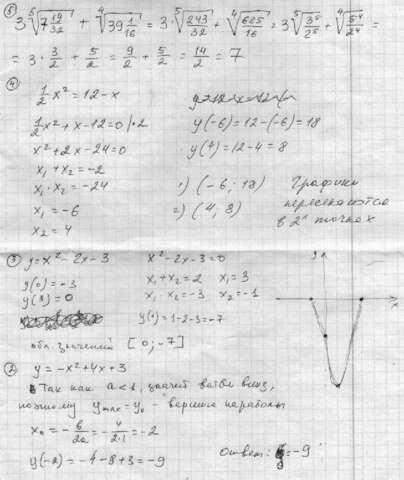 ⑤ 3 ⁵√7 19/32 + ⁴√39 1/16 = 3 · ⁵√243/32 + ⁴√625/16 = 3 ⁵√3⁵/2⁵ + ⁴√5⁴/2⁴ =
= 3 · 3/2 + 5/2 = 9/2 + 5/2 = 14/2 = 7
④
1/2 x² = 12 - x
1/2 x² + x - 12 = 0 | · 2
x² + 2x - 24 = 0
x₁ + x₂ = -2
x₁ · x₂ = -24
x₁ = -6
x₂ = 4
y(-6) = 12 - (-6) = 18
y(4) = 12 - 4 = 8
1) (-6; 18)
2) (4; 8)
Графики
пересекаются
в 2ˣ точках
③ y = x² - 2x - 3
y(0) = -3
y(3) = 0
x² - 2x - 3 = 0
x₁ + x₂ = 2 x₁ = 3
x₁ · x₂ = -3 x₂ = -1
y(1) = 1 - 2 - 3 = -7
обл. значений [0; -7]
y
x
②
y = -x² + 4x + 3
Так как a < 0, значит ветви вниз,
поэтому y max = y₀ - вершина параболы
x₀ = -b/2a = -4/2·1 = -2
y(-2) = -4 - 8 + 3 = -9
Ответ: y = -9